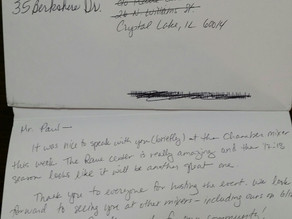 35 Berkshire Dr.
26 N Williams St
Crystal Lake, IL 60014
Mr. Paul —
It was nice to speak with you (briefly) at the Chamber mixer
this week. The Raue Center is really amazing and the
season looks like it will be another great one.
Thank you to everyone for hosting the event. We look
forward to seeing you at other mixers - including ours up